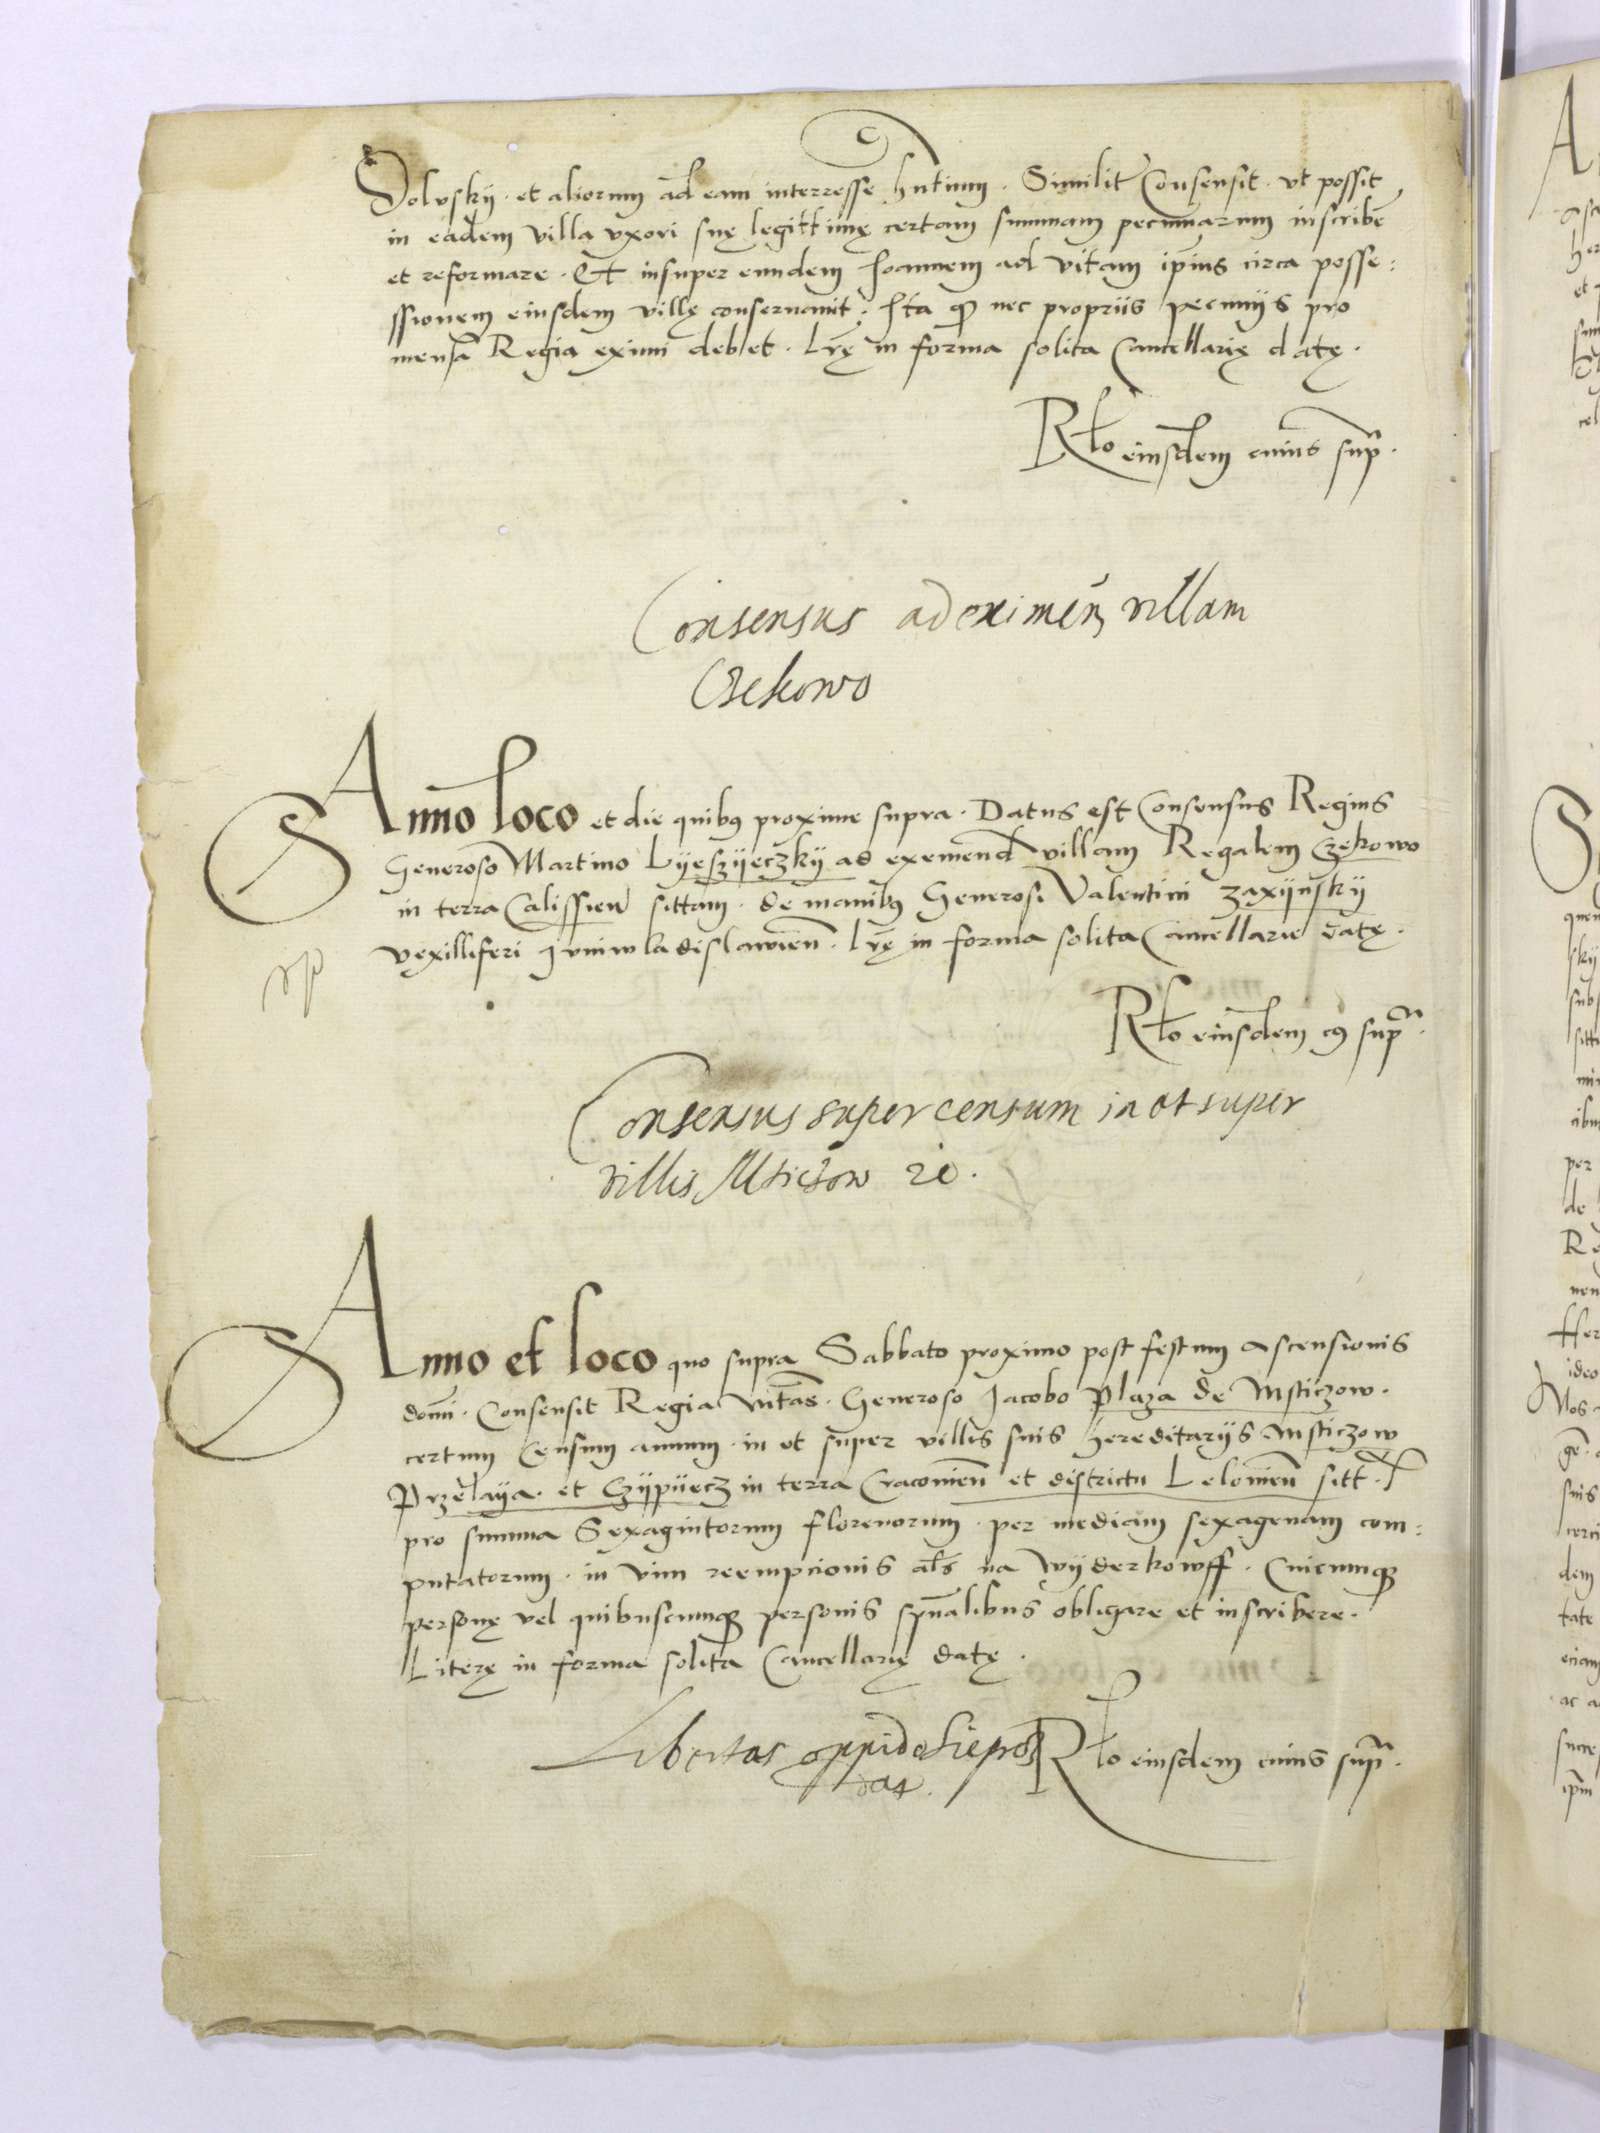 Dolvskij. et aliorum ad eam interresse hntium. Similit Consensit. vt possit
in eadem villa vxori suę legittimę certam summam pecuniarum inscribe
et reformare. Et insuper eundem Joannem ad vitam ipius circa posse:
ssionem eiusdem villę conseruauit. Ita q nec propriis pecunijs pro
mensa Regia eximi debet. Lrę in forma solita Cancellarię datę.
Rło eiusdem cuius sup.
Consensus ad eximen villam
Czekowo
Anno loco et die quibus proxime supra. Datus est Consensus Regius
Generoso Martino Lyeszyeczkij ad exemend villam Regalem Czekowo
in terra Calissien sittam. de manibus Generosi Valentini zaxijnskij
vexilliferi Juniwladislauien. Lrę in forma solita Cancellarie datę.
Rło eiusdem cuius sup.
Consensus super censum in et super
villis Msticzow rc.
Anno et loco quo supra Sabbato proximo post festum Ascensionis
domi. Consensit Regia Mtas. Generoso Jacobo Plaza de Msticzow.
certum Censum annum. in et super villis suis hereditarijs Msticzow
Przelaya. et Czijpijecz in terra Cracouien et districtu Lelouien sitt.
pro summa Sexagintorum florenorum. per mediam sexagenam com:
putatorum. in vim reempcionis als na Wijderkowff. Cuicumq
personę vel quibuscumq personis spualibus obligare et inscribere.
Literę in forma solita Cancellarię datę.
Libertas oppido
Rło eiusdem cuius sup.